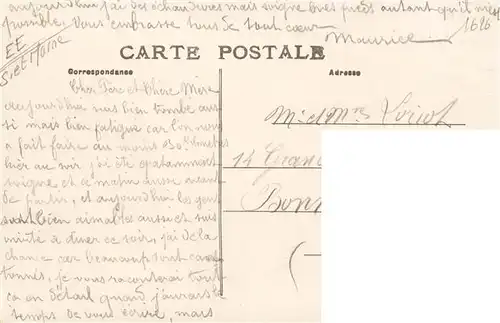 aujourd'hui j'ai des chaudures mais soigne bien pieds autant qu'il m'est
possible. Vous embrasse tous de tout cœur
Maurice
1616
EE
S. et Marne
CARTE POSTALE
Correspondance
Adresse
Cher Père et Chère Mère
aujourd'hui suis bien tombé aus
si mais bien fatigué car l'on nous
a fait faire au moins 30
hier au soir j'ai été
soigné et ce matin aussi avant
de partir, et aujourd'hui les gens
sont bien aimables aussi et suis
invité à diner ce soir, j'ai de la
chance car beaucoup sont canton
tonnés, je vous raconterai tout
ça en détail quand j'aurais le
temps de vous écrire, mais
Mr et Mme Voirol
14 Gran
Bonn
(